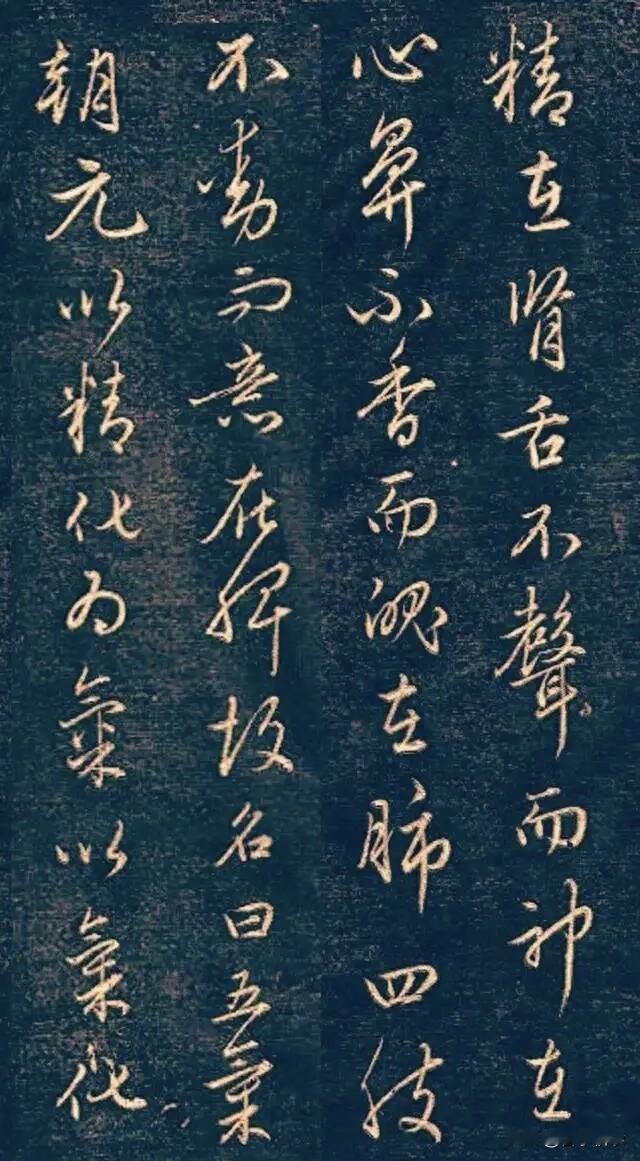 精在肾舌不聲而神在
心鼻不香而魄在肺四肢
不動而意在脾故名曰五氣
朝元以精化為氣以氣化